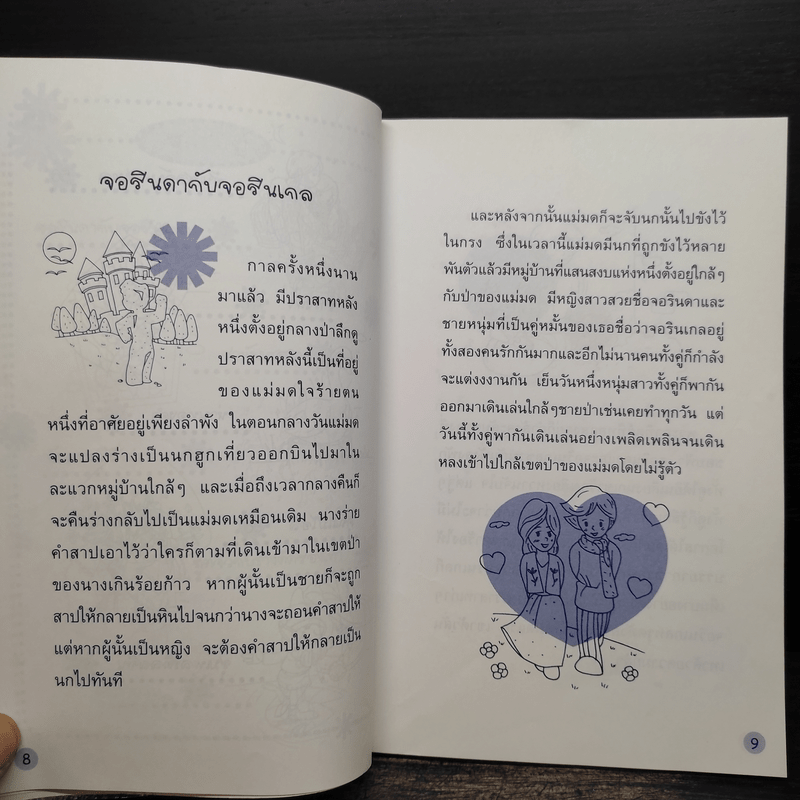 จอรินดากับจอรินเกล
กาลครั้งหนึ่งนาน
มาแล้ว มีปราสาทหลัง
หนึ่งตั้งอยู่กลางป่าลึกดู
ปราสาทหลังนี้เป็นที่อยู่
ของแม่มดใจร้ายตน
หนึ่งที่อาศัยอยู่เพียงลำพัง ในตอนกลางวันแม่มด
จะแปลงร่างเป็นนกฮูกเที่ยวออกบินไปมาใน
ละแวกหมู่บ้านใกล้ๆ และเมื่อถึงเวลากลางคืนก็
จะคืนร่างกลับไปเป็นแม่มดเหมือนเดิม นางร่าย
คำสาปเอาไว้ว่าใครก็ตามที่เดินเข้ามาในเขตป่า
ของนางเกินร้อยก้าว หากผู้นั้นเป็นชายก็จะถูก
สาปให้กลายเป็นหินไปจนกว่านางจะถอนคำสาปให้
แต่หากผู้นั้นเป็นหญิง จะต้องคำสาปให้กลายเป็น
นกไปทันที
8
และหลังจากนั้นแม่มดก็จะจับนกนั้นไปขังไว้
ในกรง ซึ่งในเวลานี้แม่มดมีนกที่ถูกขังไว้หลาย
พันตัวแล้วมีหมู่บ้านที่แสนสงบแห่งหนึ่งตั้งอยู่ใกล้ๆ
กับป่าของแม่มด มีหญิงสาวสวยชื่อจอรินดาและ
ชายหนุ่มที่เป็นคู่หมั้นของเธอชื่อว่าจอรินเกลอยู่
ทั้งสองคนรักกันมากและอีกไม่นานคนทั้งคู่ก็กำลัง
จะแต่งงงานกัน เย็นวันหนึ่งหนุ่มสาวทั้งคู่ก็พากัน
ออกมาเดินเล่นใกล้ๆชายป่าเช่นเคยทำทุกวัน แต่
วันนี้ทั้งคู่พากันเดินเล่นอย่างเพลิดเพลินจนเดิน
หลงเข้าไปใกล้เขตป่าของแม่มดโดยไม่รู้ตัว
9